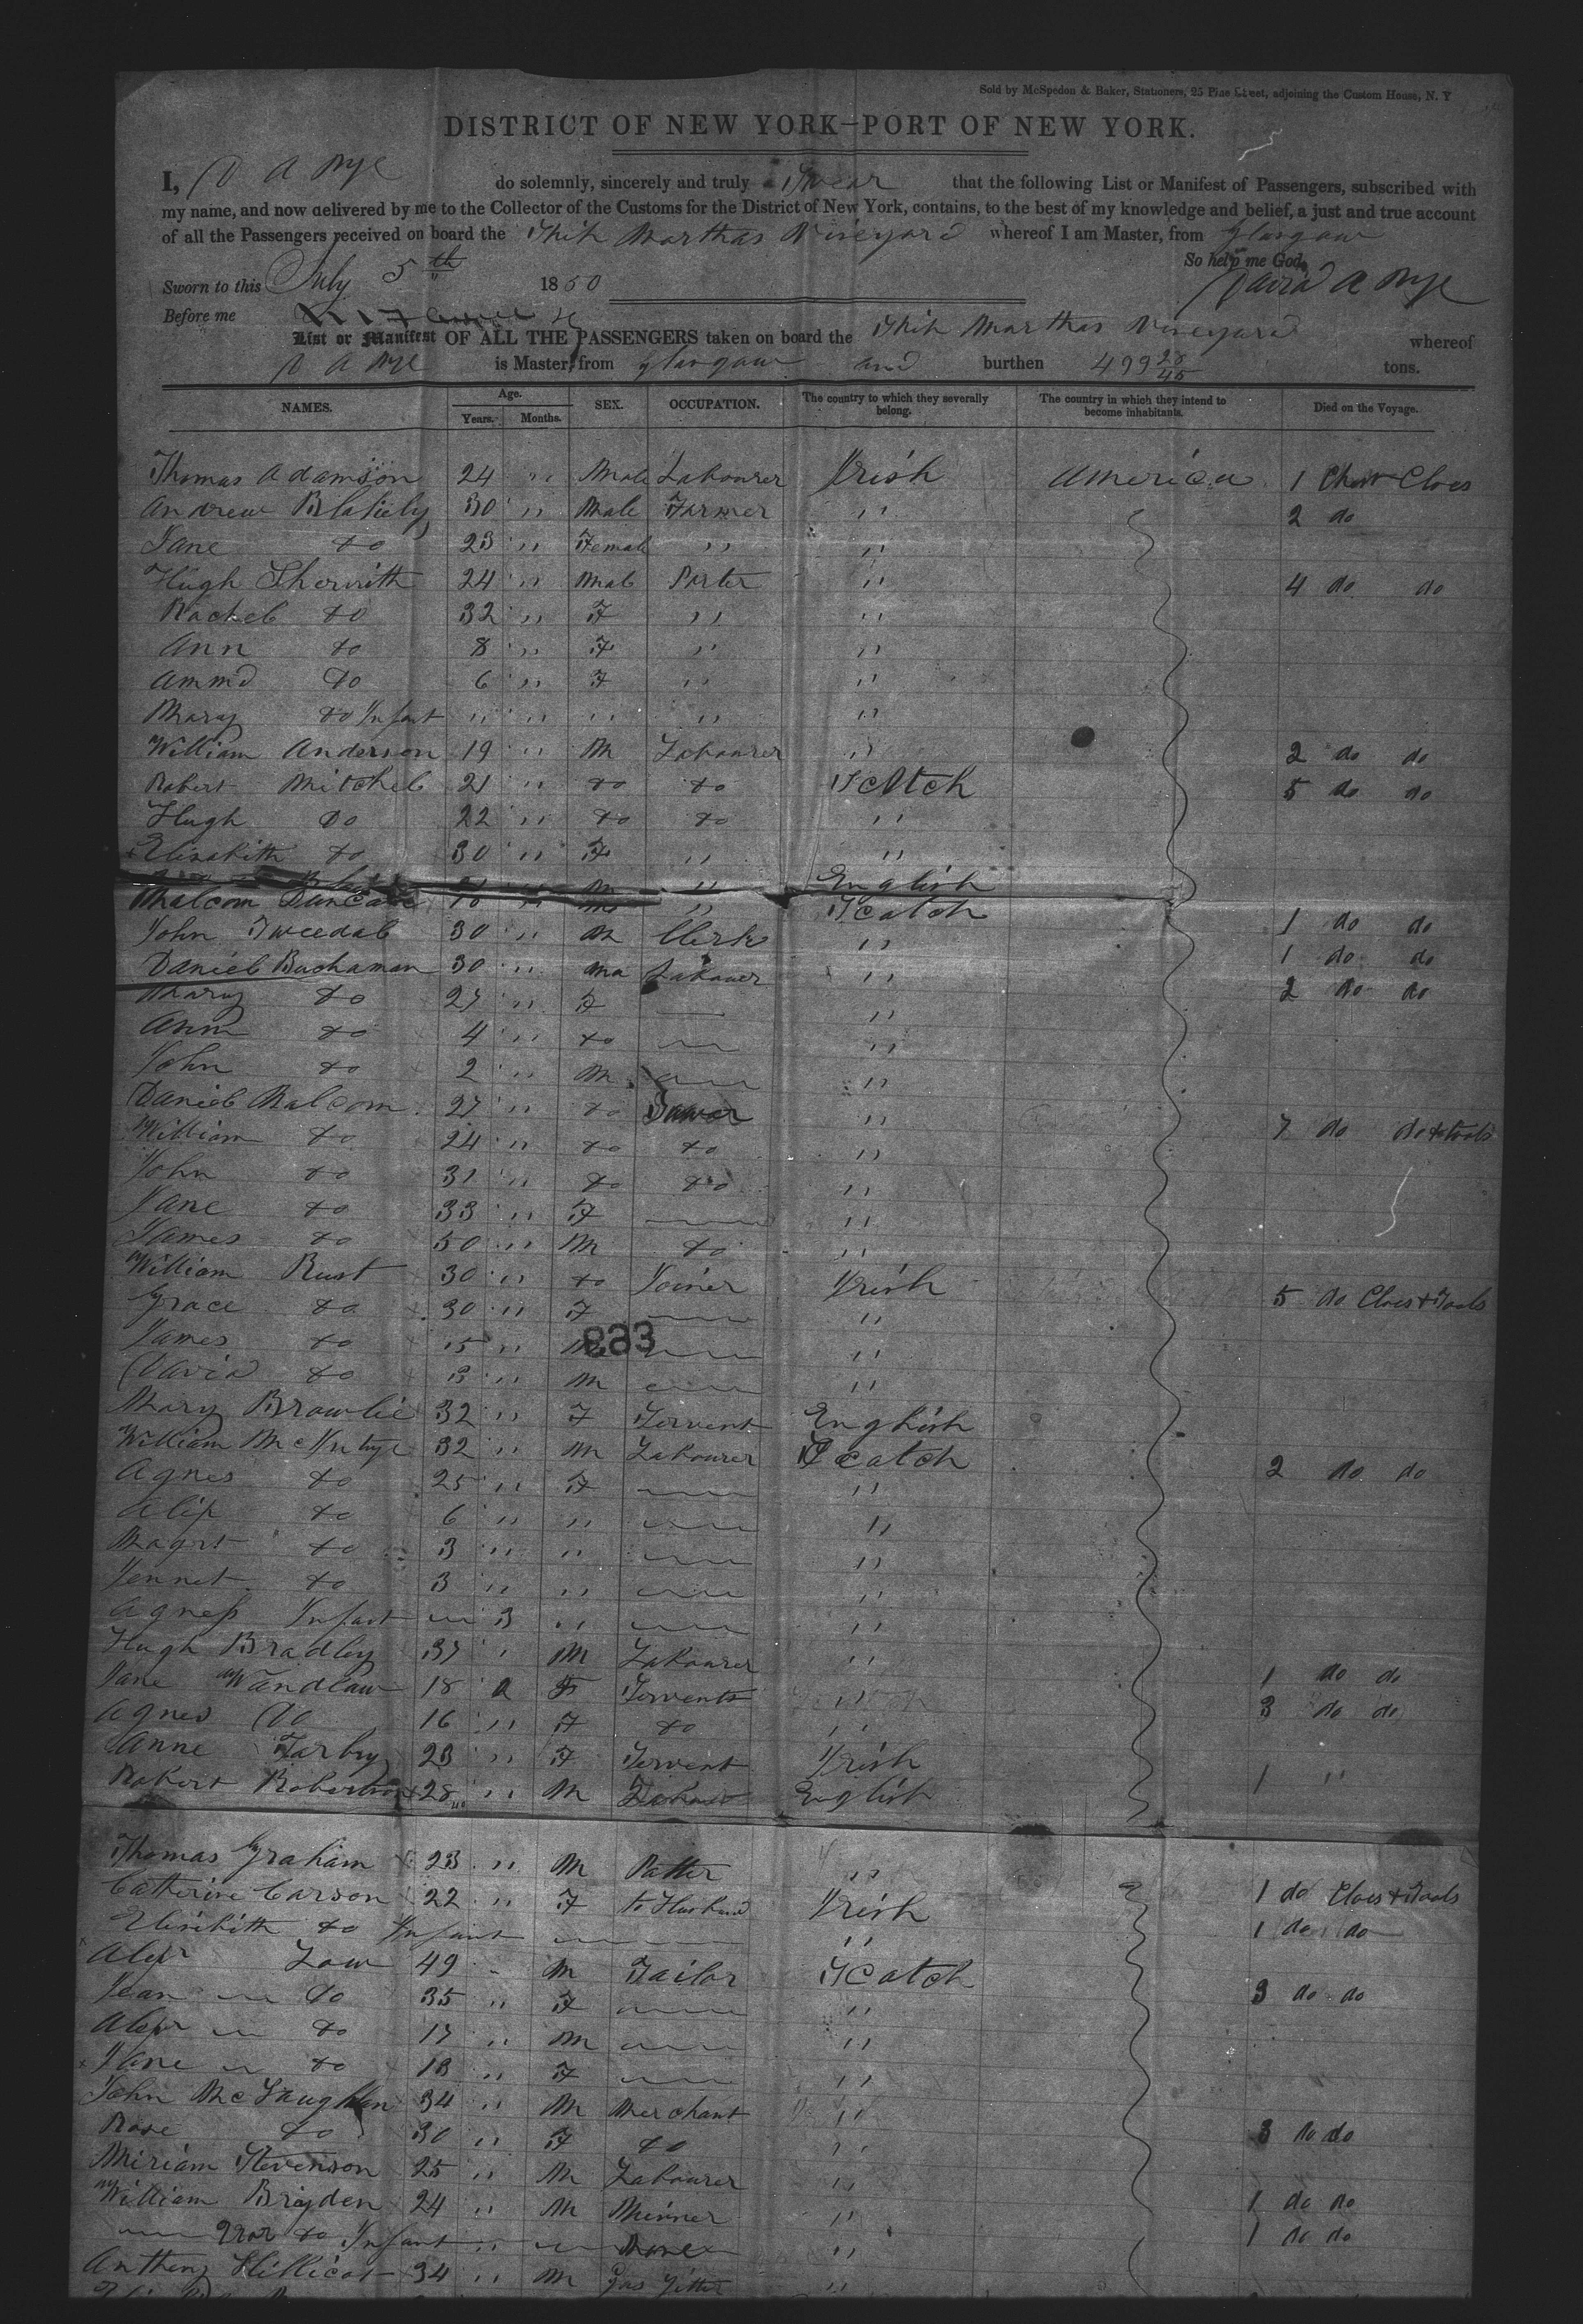 Sold by McSpedon & Baker, Stationers, 25 Pine Street, adjoining the Custom House, N. Y
DISTRICT OF NEW YORK—PORT OF NEW YORK.
I, D A Nye do solemnly, sincerely and truly Swear that the following List or Manifest of Passengers, subscribed with
my name, and now delivered by me to the Collector of the Customs for the District of New York, contains, to the best of my knowledge and belief, a just and true account
of all the Passengers received on board the Ship Marthas Vineyard whereof I am Master, from Glasgow
So help me God.
Sworn to this July 5th 1850 David A Nye
Before me
List or Manifest OF ALL THE PASSENGERS taken on board the Ship Marthas Vineyard whereof
D A Nye is Master, from Glasgow and burthen 499 28/45 tons.
NAMES. Age. Years. Months. SEX. OCCUPATION. The country to which they severally belong. The country in which they intend to become inhabitants. Died on the Voyage.
Thomas Adamson 24 " Male Labourer Irish America 1 Cloes
Andrew 30 " Male Farmer " 2 do
Jane do 23 " Female " "
Hugh 24 " Male Porter " 4 do do
Rachel do 32 " F " "
Ann do 8 " F " "
do 6 " F " "
Mary do Infant " " " " "
William Anderson 19 " M Labourer " 2 do do
Robert Mitchel 21 " do do Scotch 5 do do
Hugh Do 22 " do do "
Elisabith do 30 " F " "
M " English
Malcom Duncan " " Scotch 1 do do
John Tweedal 30 " M Clerk " 1 do do
Daniel Buchaman 30 " Ma Labouer " 2 do do
Mary do 27 " F "
Ann do 4 " do "
John do 2 " M "
Daniel Malcom 27 " do Sawer " 7 do do & tools
William do 24 " do do "
John do 31 " do do "
Jane do 33 " F "
James do 50 " M do "
William Rust 30 " do Joiner Irish 5 do Cloes & Tools
Grace do 30 " F "
James do 15 " M "
883
David do 3 " M "
Mary Browlie 32 " F Servent English
William McIntye 32 " M Labourer Scotch 2 do do
Agnes do 25 " F "
do 6 " " "
Magrt do 3 " " "
Jennet do 3 " " "
Agness Infant 3 " "
Hugh Bradley 37 " M Labourer " 1 do do
Jane Wandlaw 18 F Servents " 3 do do
Agnes Do 16 " F do "
Anne Farby 23 " F Servent Irish
Robert Robertson 28 " M English 1 "
Thomas Graham 23 " M Patter " 1 do Cloes & Tools
Catherine Carson 22 " F to Husband Irish 1 do do
Elisibith do Infant "
Alexr Low 49 M Tailor Scotch 3 do do
Jean do 35 " F "
Alexr do 17 " M "
Jane do 13 " F "
John McLaughlan 34 " M Merchant " 3 do do
Rose do 30 " F do "
Miriam Stevenson 25 " M Labourer " 1 do do
William Brigden 24 " M Minner " 1 do do
do Infant " None "
Anthony 34 " M Gas Fitter "